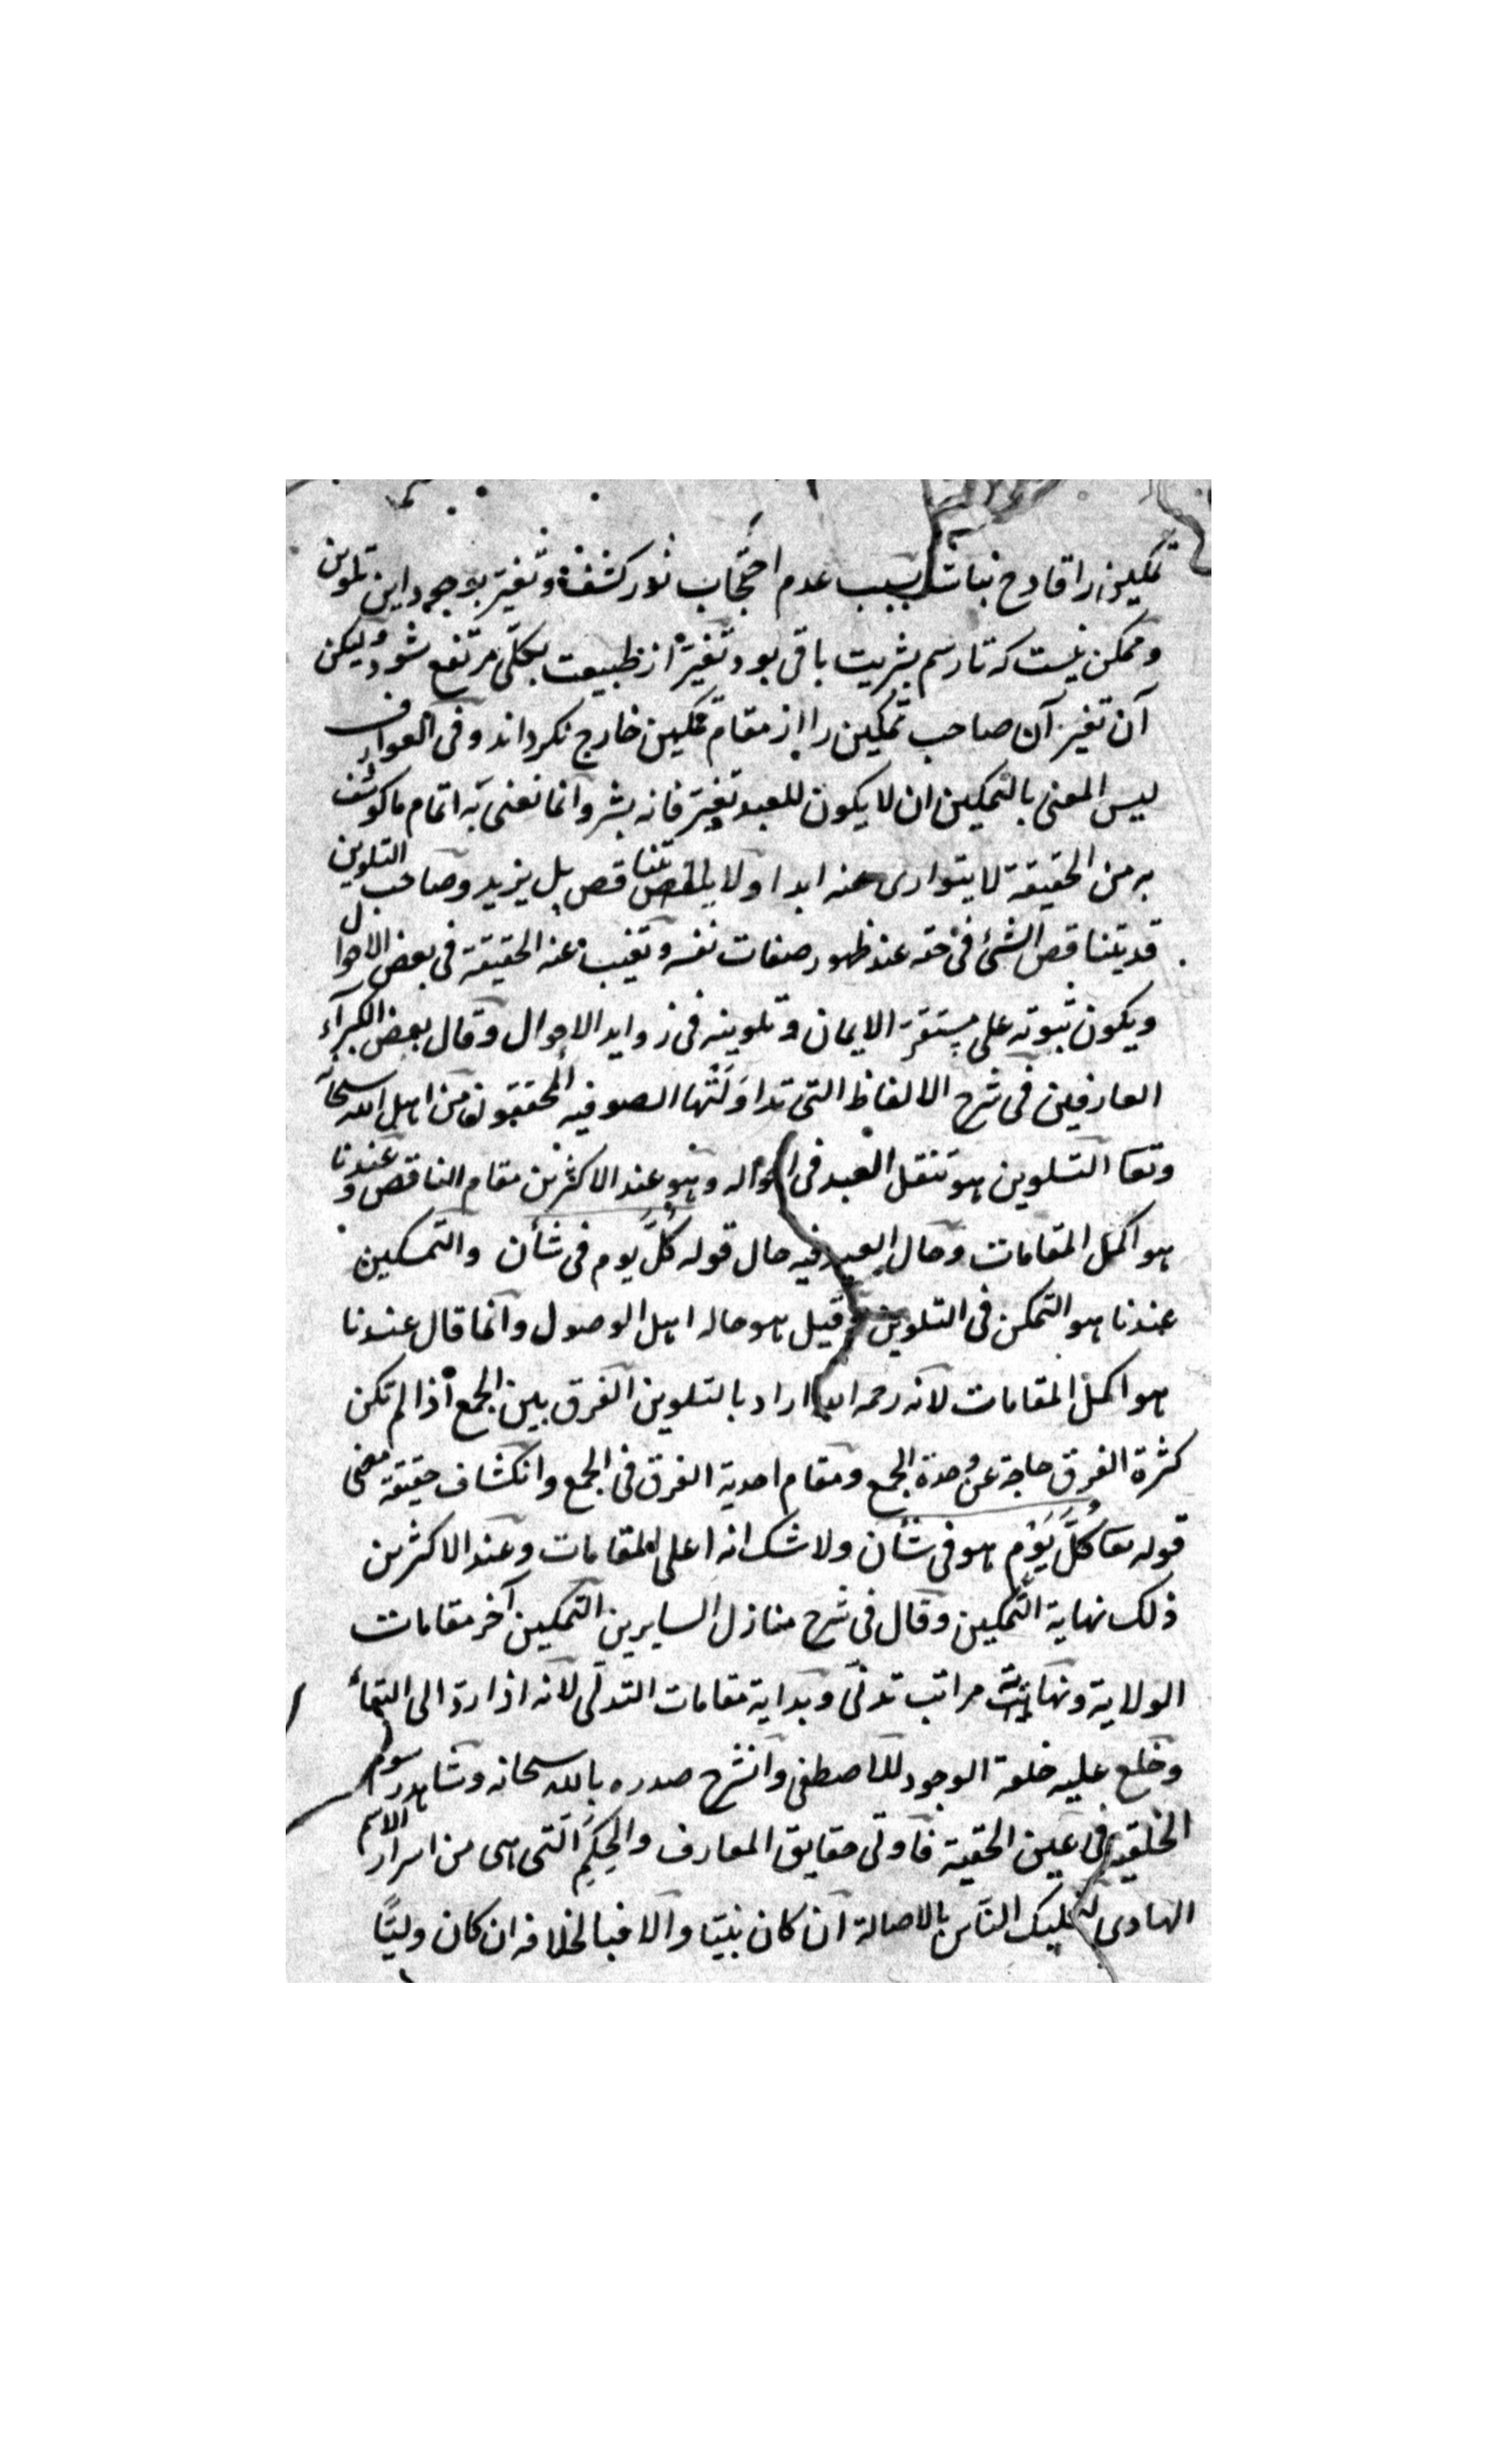 تمکین را قادح نباشد بسبب عدم احتجاب نور کشف و تغیر بوجود این تلوین
و ممکن نیست که تا رسم بشریت باقی بود تغیر از طبیعت بکلی مرتفع شود و لیکن
آن تغیر آن صاحب تمکین را از مقام تمکین خارج نکرداند و فی العوارف
لیس المعنی بالتمکین ان لا یکون للعبد تغیر فانه بشر وانما نعنی به اتمام ما کوشف
به من الحقیقة لا یتواری عنه ابدا و لا یتناقص بل یزید و صاحب التلوین
قد یتناقص الشئ فی حقه عند ظهور صفات نفسه و تغیب عنه الحقیقة فی بعض الاحوال
و یکون ثبوته علی مستقر الایمان و تلوینه فی زواید الاحوال و قال بعض الکبرآء
العارفین فی شرح الالفاظ التی تداولتها الصوفیه المحققون من اهل الله سبحانه
وتعا التلوین هو تنقل العبد فی احواله و هو عند الاکثرین مقام الناقص و عندنا
هو اکمل المقامات و حال العبد فیه حال قوله کلَّ یوم فی شأن والتمکین
عندنا هو التمکن فی التلوین و قیل هو حاله اهل الوصول وانما قال عندنا
هو اکمل المقامات لانه رحمه الله اراد بالتلوین الفرق بین الجمع اذا لم تکن
کثرة الفرق حاجة عن وحدة الجمع و مقام احدیة الفرق فی الجمع وانکشاف حقیقة معنی
قوله تعا کلَّ یَوْم هو فی شأن ولا شک انه اعلی المقامات و عند الاکثرین
ذلک نهایة التمکین و قال فی شرح منازل السایرین التمکین آخر مقامات
الولایة و نهایة مراتب تدنی و بدایة مقامات التدلی لانه اذا ردّ الی البقاء
و خلع علیه خلعة الوجود للاصطفی وانشرح صدره بالله سبحانه و شاهد رسوم
الخلقیة فی عین الحقیة فاوتی حقایق المعارف والحِکَم التی هی من اسرار الاسم
الهادی النّاس بالاصالة ان کان نبیّا والا فبالخلافه ان کان ولیًّا